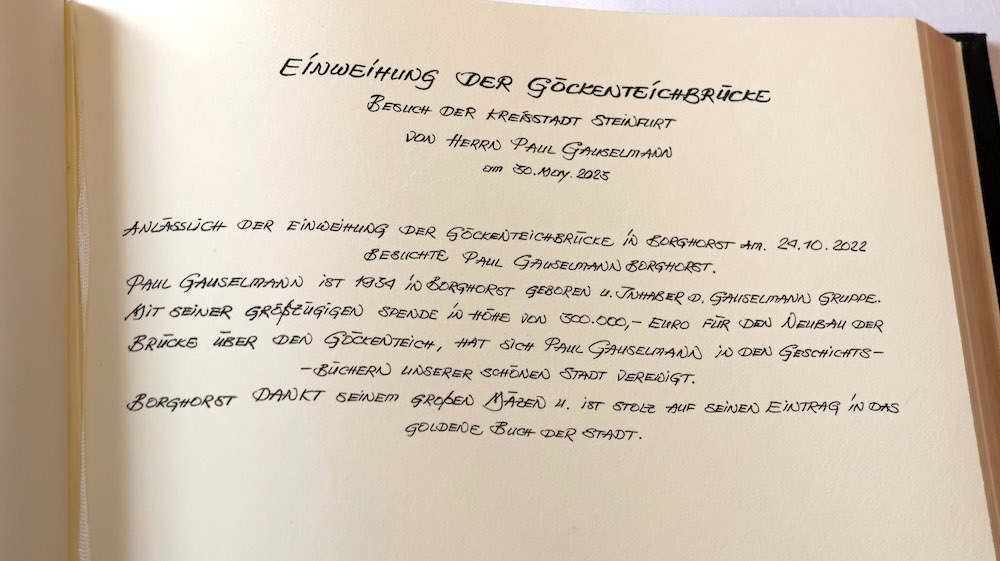 EINWEIHUNG DER GÖCKENTEICHBRÜCKE
BESUCH DER KREISSTADT STEINFURT
VON HERRN PAUL GAUSELMANN
am 30. May. 2023
ANLÄSSLICH DER EINWEIHUNG DER GÖCKENTEICHBRÜCKE IN BORGHORST AM. 24.10.2022
BESUCHTE PAUL GAUSELMANN BORGHORST.
PAUL GAUSELMANN IST 1934 IN BORGHORST GEBOREN U. INHABER D. GAUSELMANN GRUPPE.
MIT SEINER GROßZÜGIGEN SPENDE IN HÖHE VON 300.000,- EURO FÜR DEN NEUBAU DER
BRÜCKE ÜBER DEN GÖCKENTEICH, HAT SICH PAUL GAUSELMANN IN DEN GESCHICHTS-
-BÜCHERN UNSERER SCHÖNEN STADT VEREWIGT.
BORGHORST DANKT SEINEM GROßEN MÄZEN U. IST STOLZ AUF SEINEN EINTRAG IN DAS
GOLDENE BUCH DER STADT.